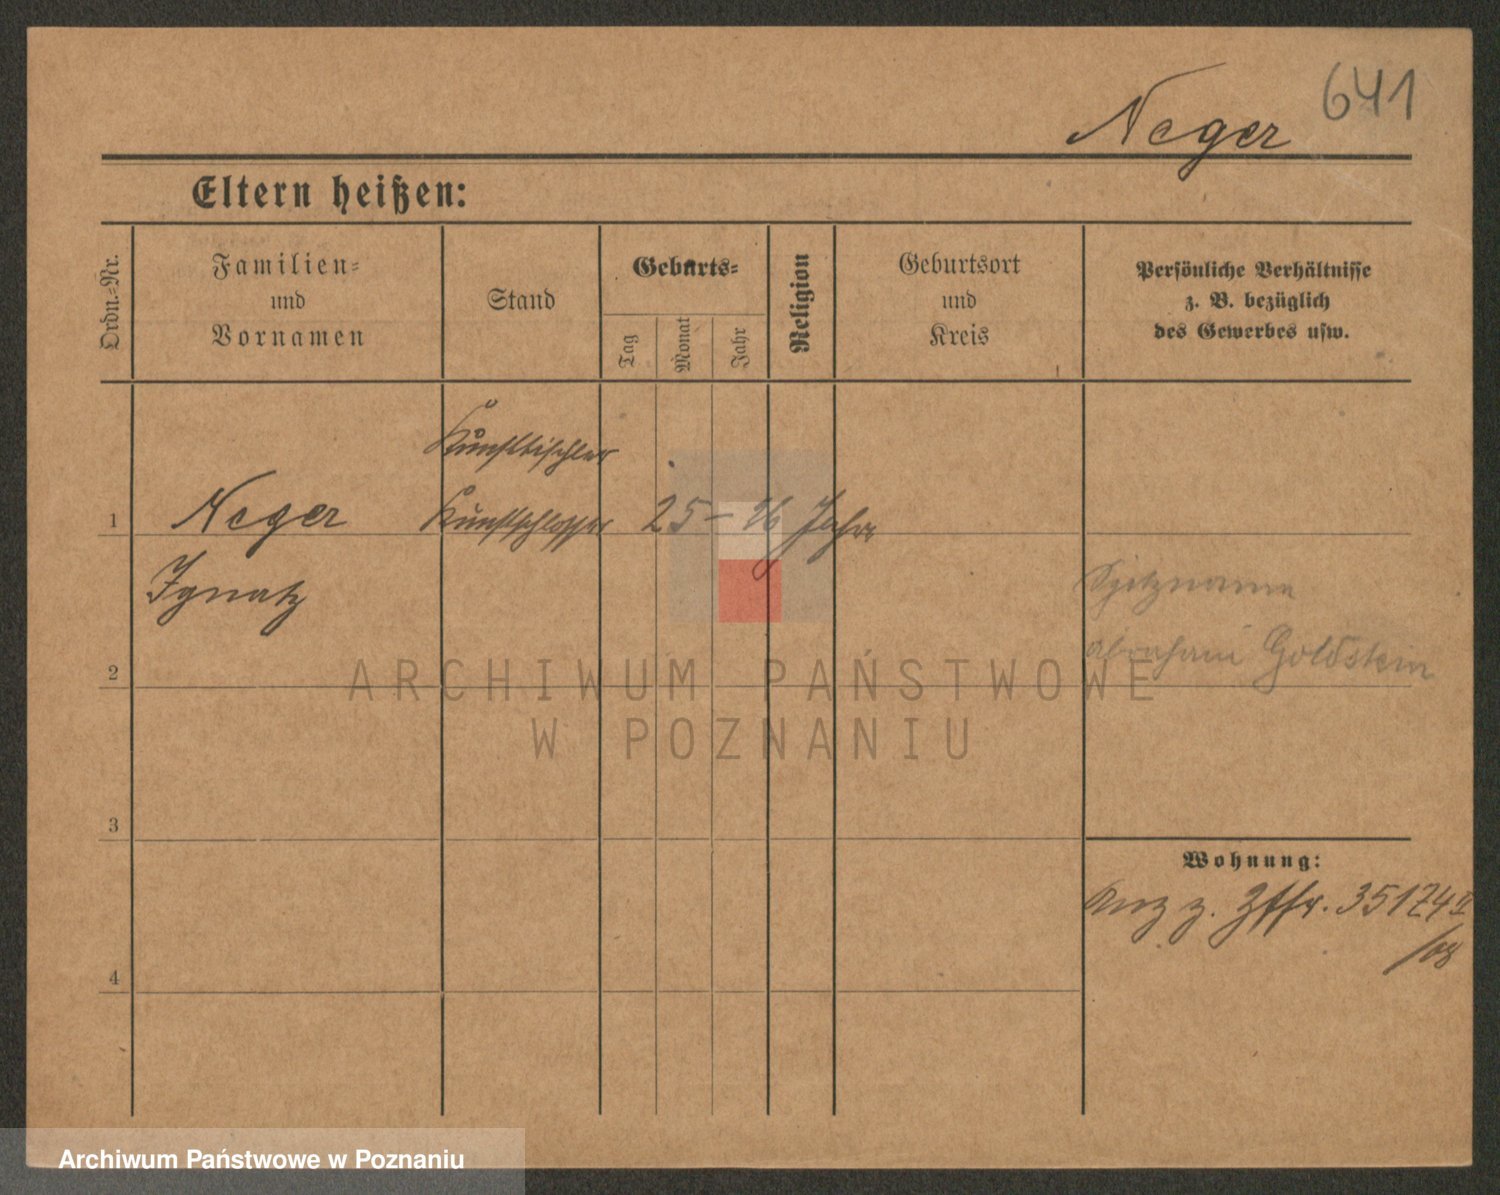 641
Neger
Eltern heißen:
Ordn.-Nr.
Familien-
und
Vornamen
Stand
Geburts-
Tag
Monat
Jahr
Religion
Geburtsort
und
Kreis
Persönliche Verhältnisse
z. B. bezüglich
des Gewerbes usw.
Kunsttischler
1
Neger
Kunstschlosser
25 – 26 Jahre
Ignatz
Spitzname
Abraham Goldstein
2
3
4
Wohnung:
z. 35174 II
/08
ARCHIWUM PAŃSTWOWE
W POZNANIU
Archiwum Państwowe w Poznaniu